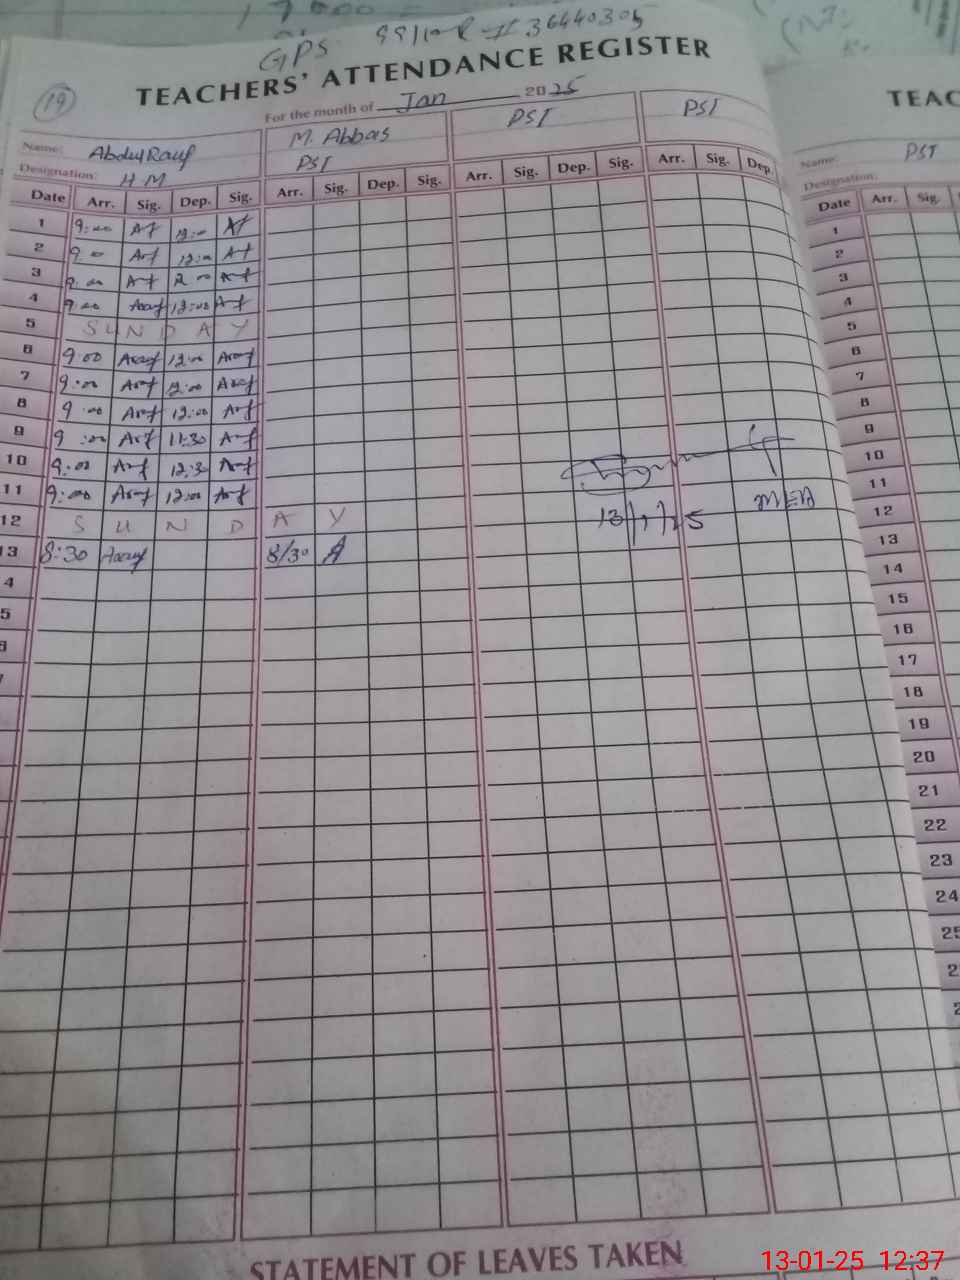 GPS 99/10-R # 36440305
TEACHERS' ATTENDANCE REGISTER
19
For the month of Jan 2025
Name: Abdul Rauf M. Abbas PST PST
Designation: HM PST
Date Arr. Sig. Dep. Sig. Arr. Sig. Dep. Sig. Arr. Sig. Dep. Sig. Arr. Sig. Dep.
1 9:00 12:00
2 9:00 12:00
3 9:00 2:00
4 9:00 12:00
5 SUNDAY
6 9:00 12:00
7 9:00 12:00
8 9:00 12:00
9 9:00 11:30
10 9:00 12:30
11 9:00 12:00
12 SUNDAY
13 8:30 8/30
4
5
13/1/25
MEA
TEAC
Name: PST
Designation:
Date Arr. Sig.
1
2
3
4
5
6
7
8
9
10
11
12
13
14
15
16
17
18
19
20
21
22
23
24
25
2
2
STATEMENT OF LEAVES TAKEN
13-01-25 12:37